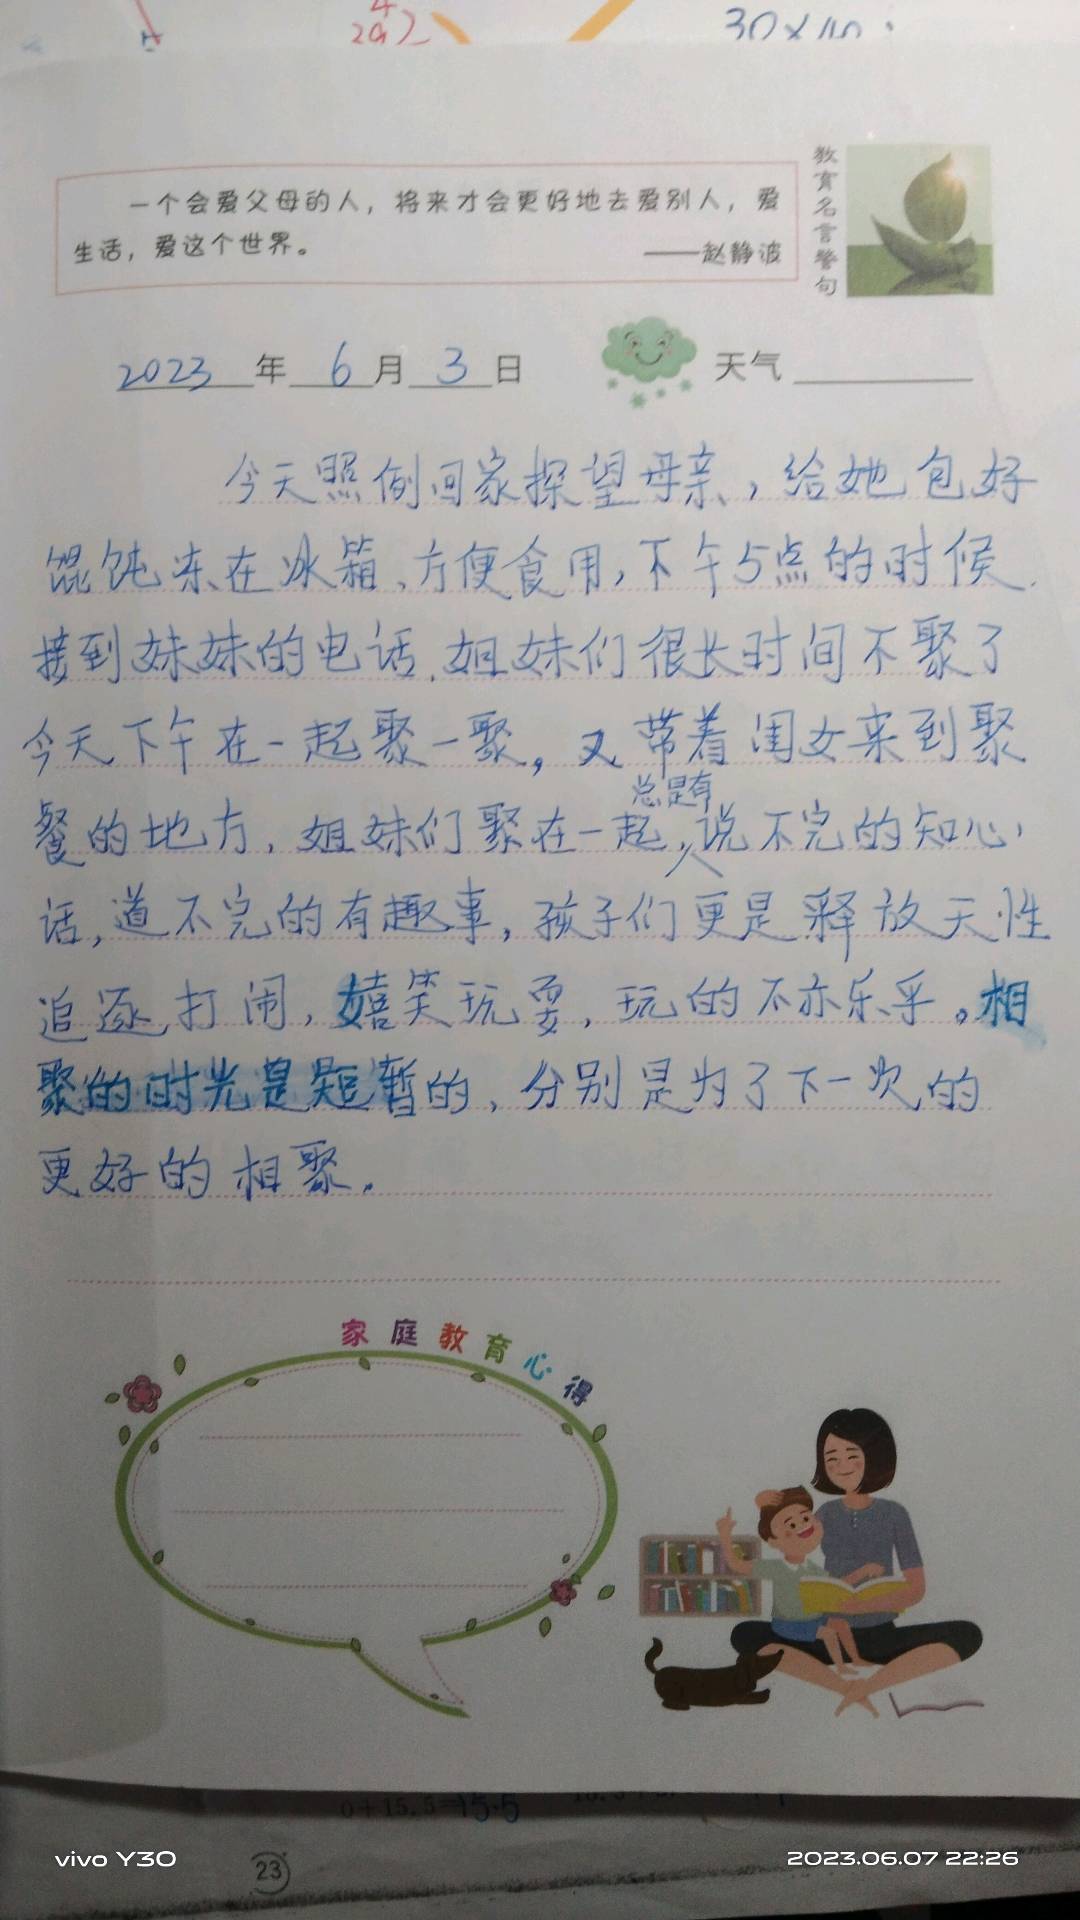 30×40
一个会爱父母的人，将来才会更好地去爱别人，爱
生活，爱这个世界。
——赵静波
教育名言警句
2023年6月3日 天气
今天照例回家探望母亲，给她包好
馄饨冻在冰箱、方便食用，下午5点的时候，
接到妹妹的电话，姐妹们很长时间不聚了
今天下午在一起聚一聚，又带着闺女来到聚
餐的地方，姐妹们聚在一起，总是有说不完的知心
话，道不完的有趣事，孩子们更是释放天性
追逐打闹，嬉笑玩耍，玩的不亦乐乎。相
聚的时光是短暂的，分别是为了下一次的
更好的相聚。
家庭教育心得
0+15.5=15.5
23
vivo Y30
2023.06.07 22:26